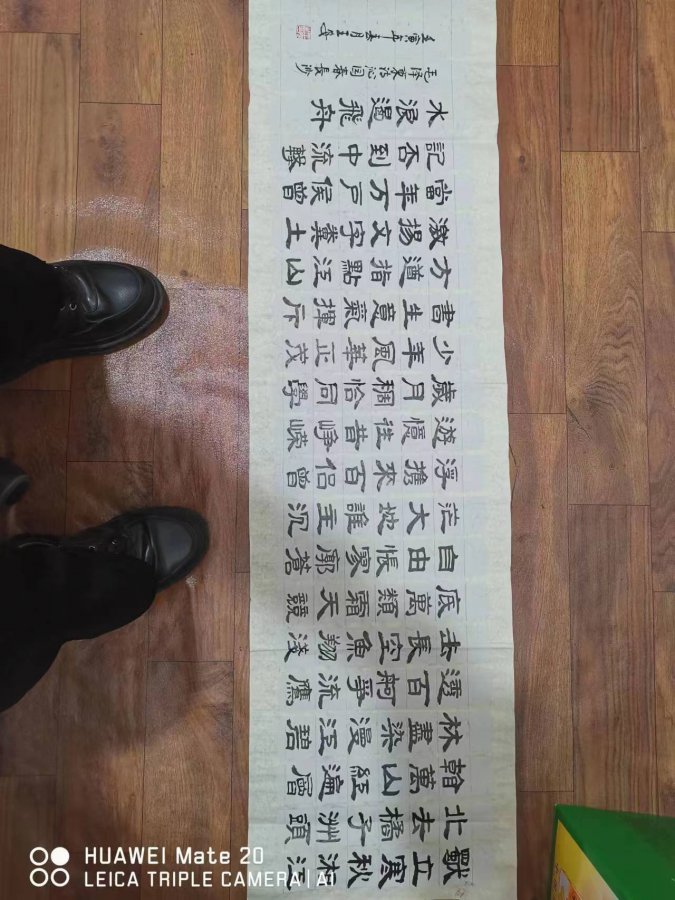 獨立寒秋湘江
北去橘子洲頭
看萬山紅遍層
林盡染漫江碧
透百舸爭流鷹
去長空魚翔淺
底萬類霜天競
自由悵寥廓蒼
茫大地誰主沉
浮攜來百侣曾
遊憶往昔崢嶸
歲月稠恰同學
少年風華正茂
書生意氣揮斥
方遒指點江山
激揚文字糞土
當年万戶侯曾
記否到中流擊
水浪遏飛舟
毛泽東詩沁园春長沙
壬寅年春月
HUAWEI Mate 20
LEICA TRIPLE CAMERA | AI